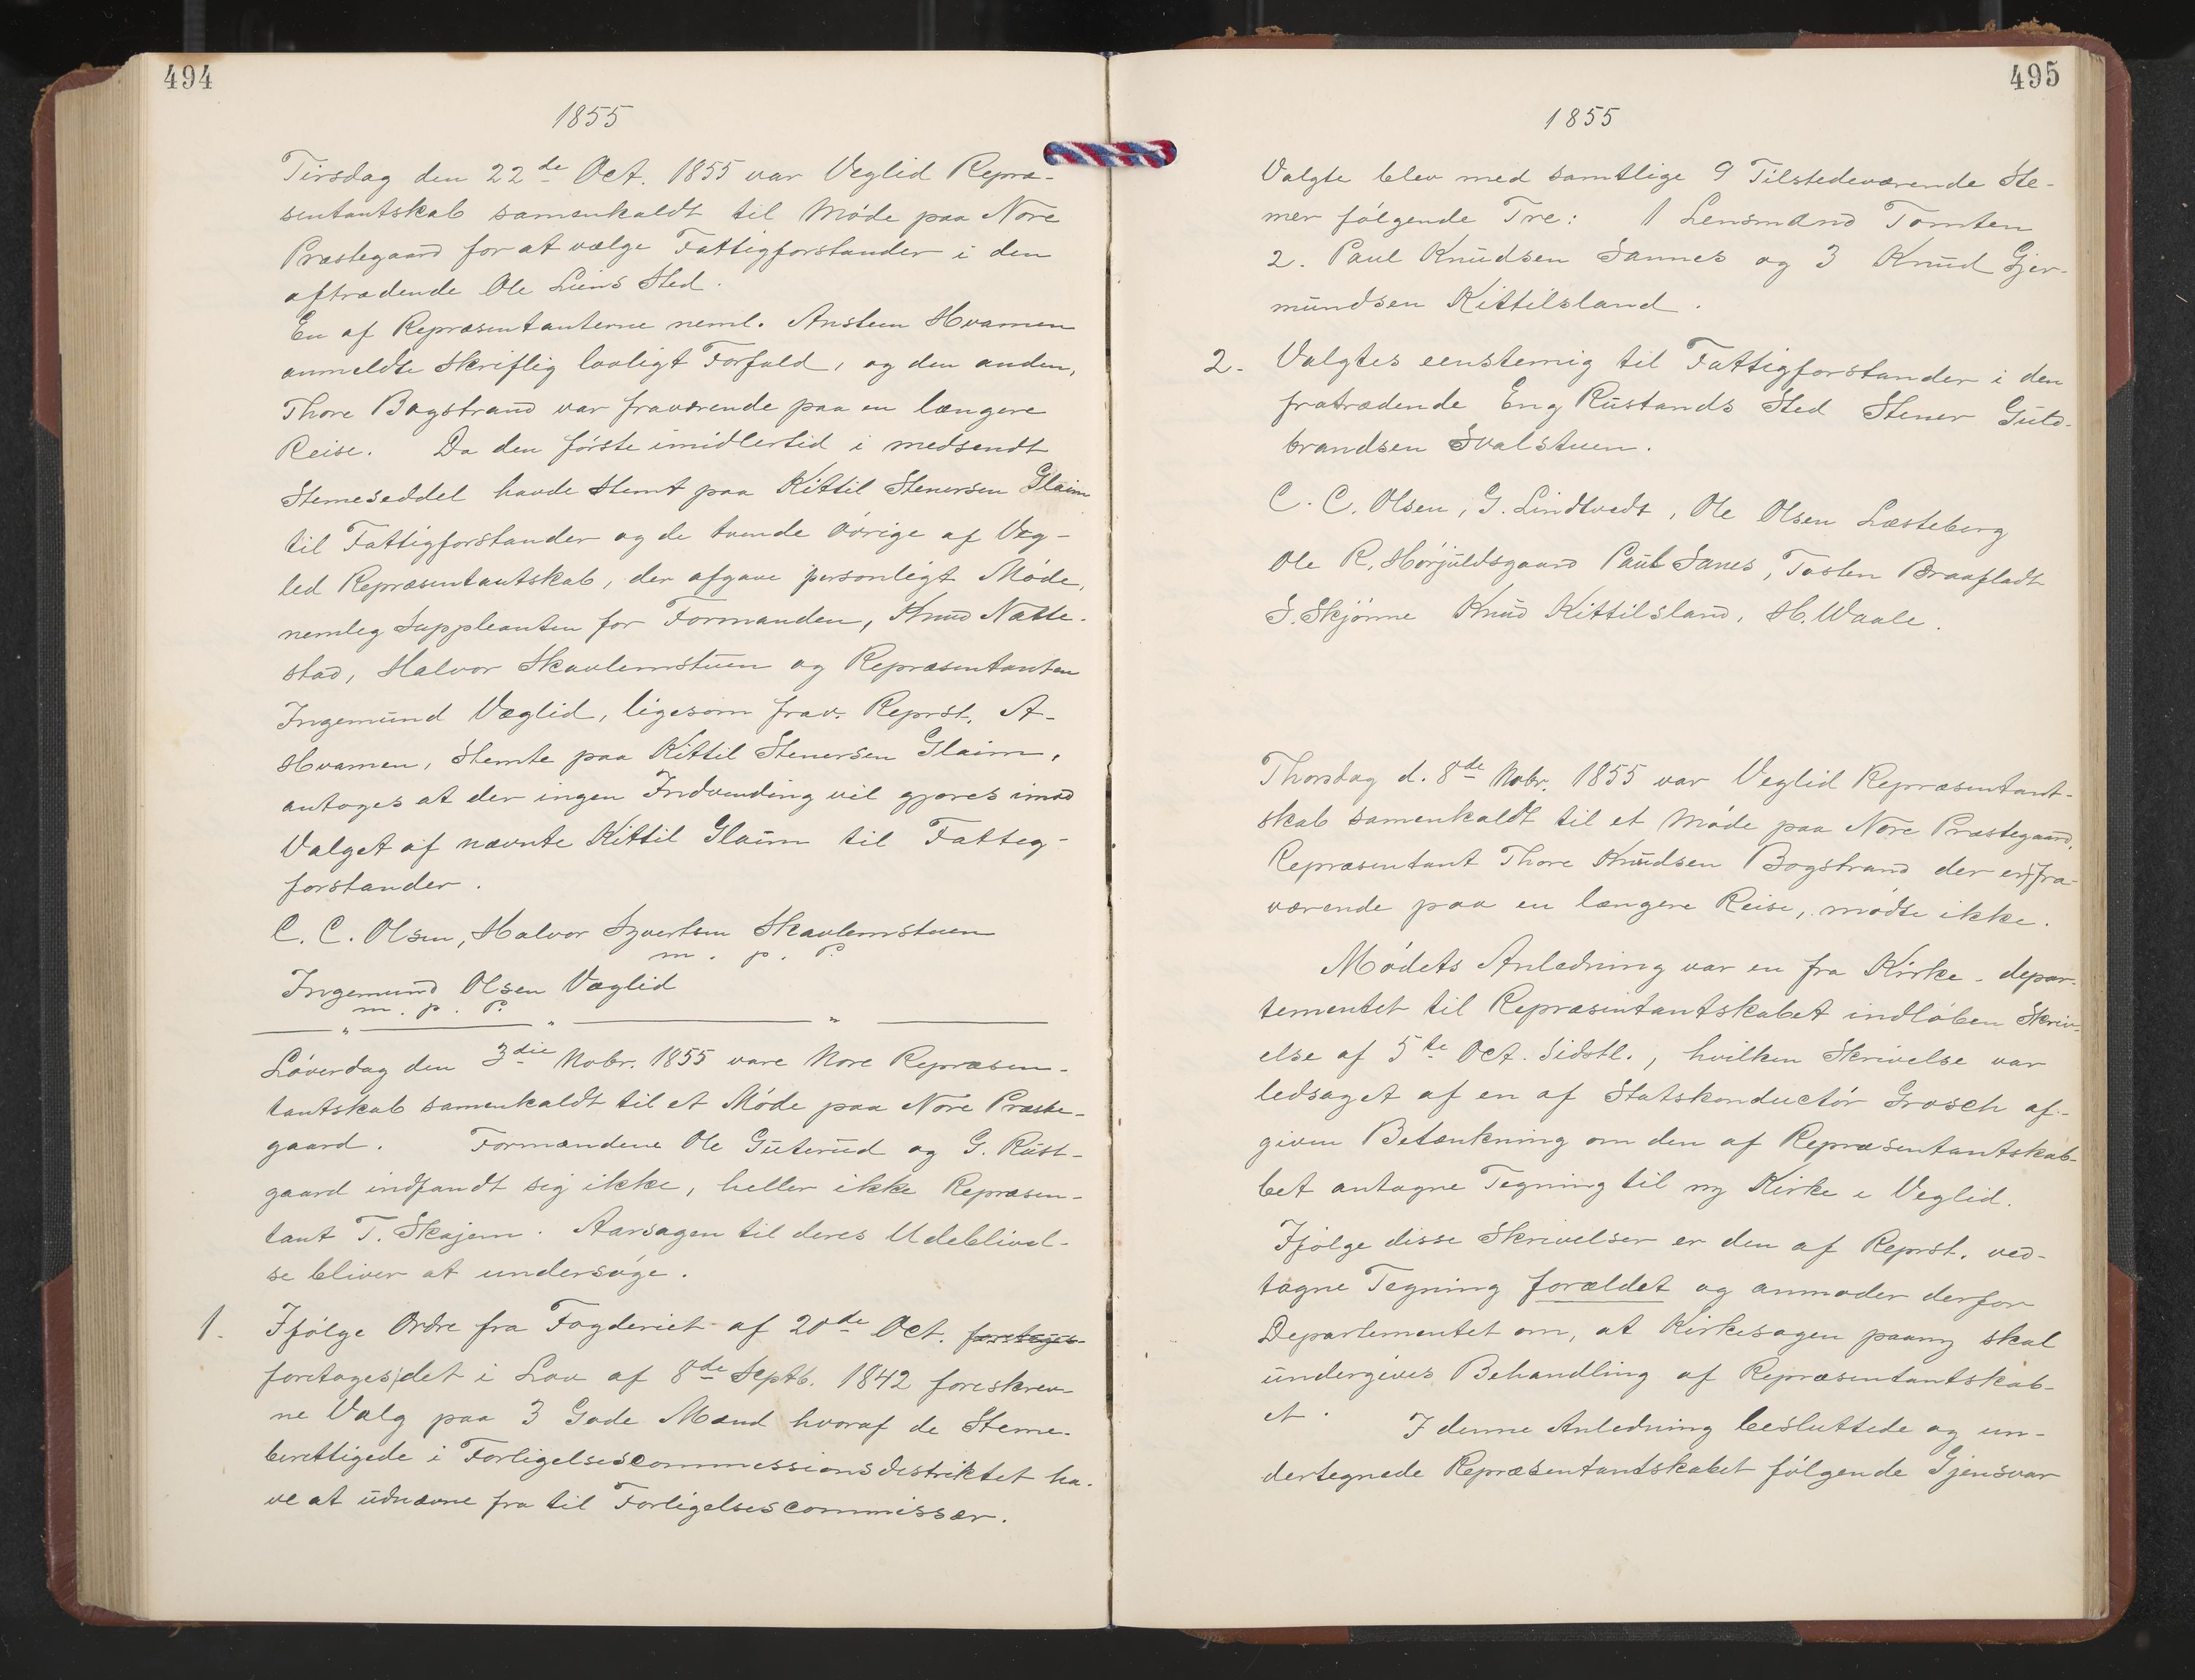 494
1855
Tirsdag den 22de Oct. 1855 var Veglid Repræ-
sentantskab samenkaldt til Møde paa Nore
Præstegaard for at vælge Fattigforstander i den
aftrædende Ole Liens Sted.
En af Repræsentanterne neml. Anstein Hvamen
anmeldte skriflig lovligt Forfald, og den anden,
Thore Bogstrand var fraværende paa en længere
Reise. Da den første imidlertid i medsendt
Stemeseddel havde stemt paa Kittil Stenersen Glaim
til Fattigforstander og de tvende øvrige af Veg-
lid Repræsentantskab, der afgave personligt Møde,
nemlig Suppleanten for Formanden, Knud Natte-
stad, Halvor Skavlemstuen og Repræsentanten
Ingemund Væglid, ligesom frav. Reprst. A-
Hvamen, stemte paa Kittil Stenersen Glaim,
antoges at der ingen Indvending vil gjøres imod
Valget af nævnte Kittil Glaim til Fatteg-
forstander.
C. C. Olsen, Halvor Syvertsen Skavlemstuen
m. p. P.
Ingemund Olsen Væglid
m. p. P.
Løverdag den 3die Nobr. 1855 vare Nore Repræsen-
tantskab samenkaldt til et Møde paa Nore Præste-
gaard. Formændene Ole Guterud og G. Rust-
gaard indfandt sig ikke, heller ikke Repræsen-
tant T. Skajem. Aarsagen til deres Udeblivel-
se bliver at undersøge.
1. Ifølge Ordre fra Fogderiet af 20de Oct. foretoges
foretoges det i Lov af 8de Septb. 1842 foreskrev-
ne Valg paa 3 Gode Mænd hvoraf de Steme-
berettigede i Forligelsescommessionsdistriktet ha-
ve at udnævne fra til Forligelsescommissær.
495
1855
Valgte blev med samtlige 9 Tilstedeværende Ste-
mer følgende Tre: 1 Lensmand Tomten
2. Paul Knudsen Sannes og 3 Knud Gjer-
mundsen Kittilsland.
2. Valgtes eenstemig til Fattigforstander i den
fratrædende Eng Rustands Sted Stener Guld-
brandsen Svalstuen.
C. C. Olsen, G. Lindtvedt, Ole Olsen Læsteberg
Ole R. Hørjuldsgaard Paul Sanes, Tosten Braafladt
S. Skjønne Knud Kittilsland, H. Waale.
Thorsdag d. 8de Nobr. 1855 var Veglid Repræsentant-
skab samenkaldt til et Møde paa Nore Præstegaard,
Repræsentant Thore Knudsen Bogstrand der er fra-
værende paa en længere Reise, mødte ikke.
Mødets Anledning var en fra Kirke-depar-
tementet til Repræsentantskabet indløben Skriv-
else af 5te Oct. sidstl., hvilken Skrivelse var
ledsaget af en af Statskonductør Grosch af-
given Betænkning om den af Repræsentantskab-
bet antagne Tegning til ny Kirke i Veglid.
Ifølge disse Skrivelser er den af Reprst. ved-
tagne Tegning forældet og anmoder derfor
Departementet om, at Kirkesagen paany skal
undergives Behandling af Repræsentantskab-
et. I denne Anledning besluttede og un-
dertegnede Repræsentantskabet følgende Gjensvar